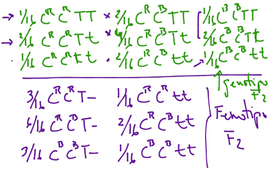 → 1/16 CᴿCᴿTT × 2/16 CᴿCᴮTT 1/16 CᴮCᴮTT
→ 2/16 CᴿCᴿTt × 4/16 CᴿCᴮTt 2/16 CᴮCᴮTt
→ 1/16 CᴿCᴿtt · 2/16 CᴿCᴮtt → 1/16 CᴮCᴮtt
genotips F₂
3/16 CᴿCᴿT– 1/16 CᴿCᴿtt
6/16 CᴿCᴮT– 2/16 CᴿCᴮtt
3/16 CᴮCᴮT– 1/16 CᴮCᴮtt
Fenotips F₂